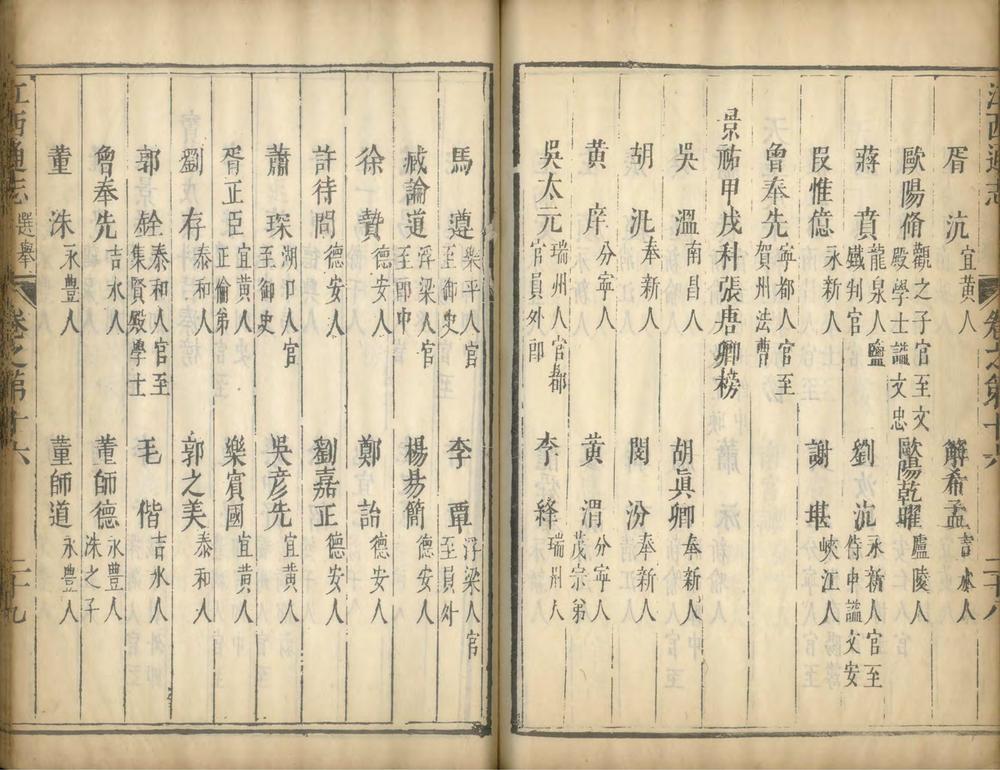 江西通志 卷之第十六 二十八
胥沆 宜黃人 解希孟 吉水人
歐陽脩 觀之子官至文殿學士謚文忠 歐陽乾曜 廬陵人
蔣賁 龍泉人鹽鐵判官 劉沆 永新人官至侍中謚文安
段惟億 永新人 謝堪 峽江人
曾奉先 寧都人官至賀州法曹
景祐甲戌科張唐卿榜
吳溫 南昌人 胡眞卿 奉新人
胡汎 奉新人 閔汾 奉新人
黃庠 分寧人 黃渭 分寧人茂宗弟
吳太元 瑞州人官都官員外郎 李絳 瑞州人
馬遵 樂平人官至御史 李覃 浮梁人官至員外
臧論道 浮梁人官至郎中 楊昜簡 德安人
徐贄 德安人 鄭詒 德安人
許待問 德安人 劉嘉正 德安人
蕭琛 湖口人官至御史 吳彦先 宜黃人
胥正臣 宜黃人正倫弟 樂賓國 宜黃人
劉存 泰和人 郭之美 泰和人
郭銓 泰和人官至集賢殿學士 毛偕 吉水人
曾奉先 吉水人 董師德 永豐人洙之子
董洙 永豐人 董師道 永豐人
江西通志 選舉一 卷之第十六 二十九